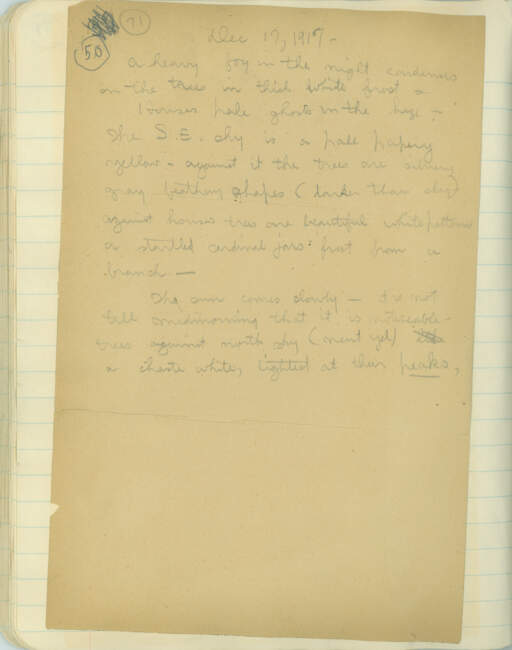 71
50
Dec 17, 1917 -
A heavy fog in the night condenses
on the trees in thick white frost &
houses pale ghosts in the haze -
The S.E. sky is a pale papery
yellow - against it the trees are silvery
gray feathery shapes (darker than sky)
against houses trees are beautiful white patterns
a startled cardinal jars frost from a
branch —
The sun comes slowly - it's not
till midmorning that it is noticeable -
trees against north sky (
a chaste white, lighted at their peaks,